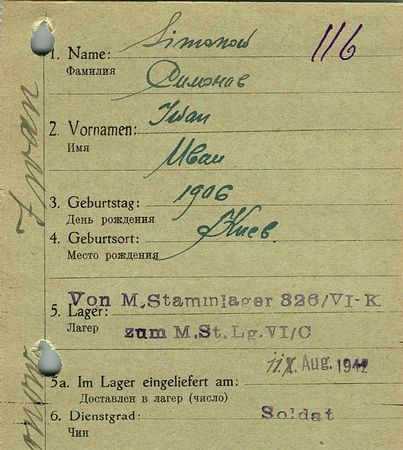 Simonow
116
1. Name:
Фамилия
Симонов
Iwan
2. Vornamen:
Имя
Иван
3. Geburtstag: 1906
День рождения
4. Geburtsort: Киев.
Место рождения
Von M.Stammlager 326/VI-K
5. Lager:
Лагерь
zum M.St.Lg.VI/C
Aug. 1942
5a. Im Lager eingeliefert am:
Доставлен в лагерь (число)
6. Dienstgrad: Soldat
Чин
Iwan